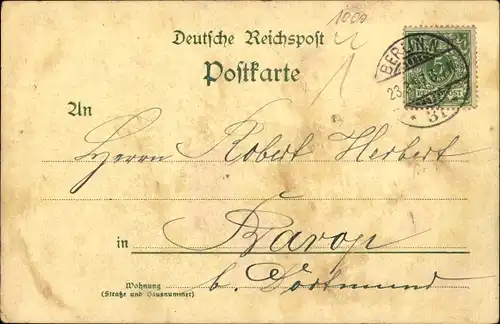 1000
Deutsche Reichspost
Postkarte
BERLIN. N.
23.
* 31
5
REICHSPOST
An
Herrn Robert Herbert
in Barop
b. Dortmund
Wohnung
(Straße und Hausnummer)